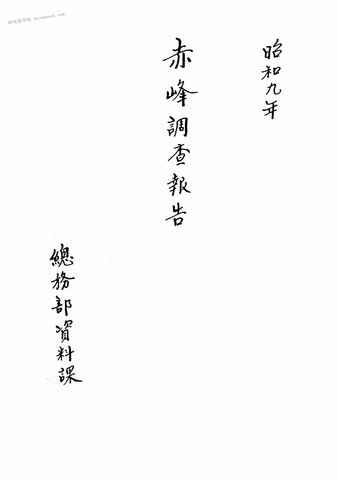 昭和九年
赤峰調查報告
總務部資料課